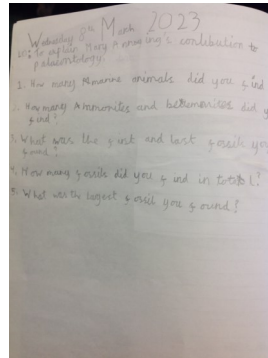 Wednesday 8th March 2023
LO: to explain Mary Anning's contribution to
palaeontology.
1. How many marine animals did you find
2. How many Ammonites and belemnites did y
find?
3. What was the first and last fossile you
found?
4. How many fossils did you find in total?
5. What was the largest fossil you found?